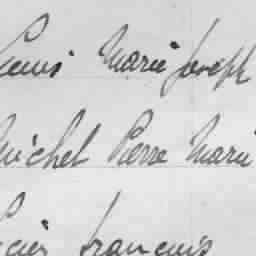 Louis Marie Joseph
Michel Pierre Marie
François